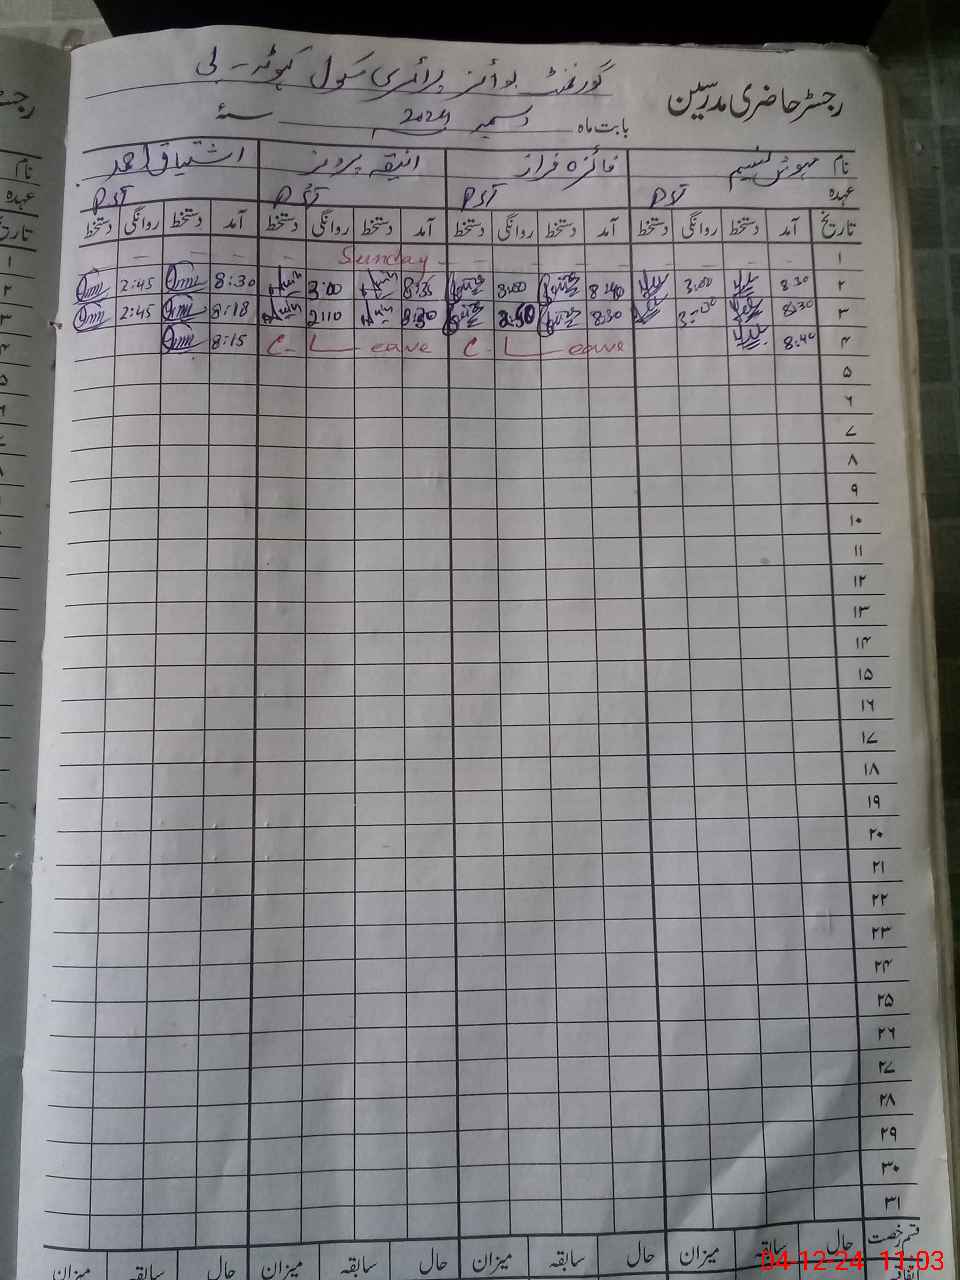 رجسٹر حاضری مدرسین
گورنمنٹ بوائز پرائمری سکول کہوٹہ - لی
بابت ماہ دسمبر 2024 سنہء
نام مہوش نسیم فائزہ فراز انیقہ پرویز اشتیاق احمد
عہدہ PST PST PST PST
تاریخ آمد دستخط روانگی دستخط آمد دستخط روانگی دستخط آمد دستخط روانگی دستخط آمد دستخط روانگی دستخط
۱ Sunday
۲ 8:30 3:00 8:40 3:00 8:35 3:00 8:30 2:45
۳ 8:30 3:00 8:30 2:50 8:30 2:10 8:18 2:45
۴ 8:40 C. Leave C. Leave 8:15
۵
۶
۷
۸
۹
۱۰
۱۱
۱۲
۱۳
۱۴
۱۵
۱۶
۱۷
۱۸
۱۹
۲۰
۲۱
۲۲
۲۳
۲۴
۲۵
۲۶
۲۷
۲۸
۲۹
۳۰
۳۱
قسم رخصت حال سابقہ میزان حال سابقہ میزان حال سابقہ میزان حال سابقہ میزان
04-12-24 11:03